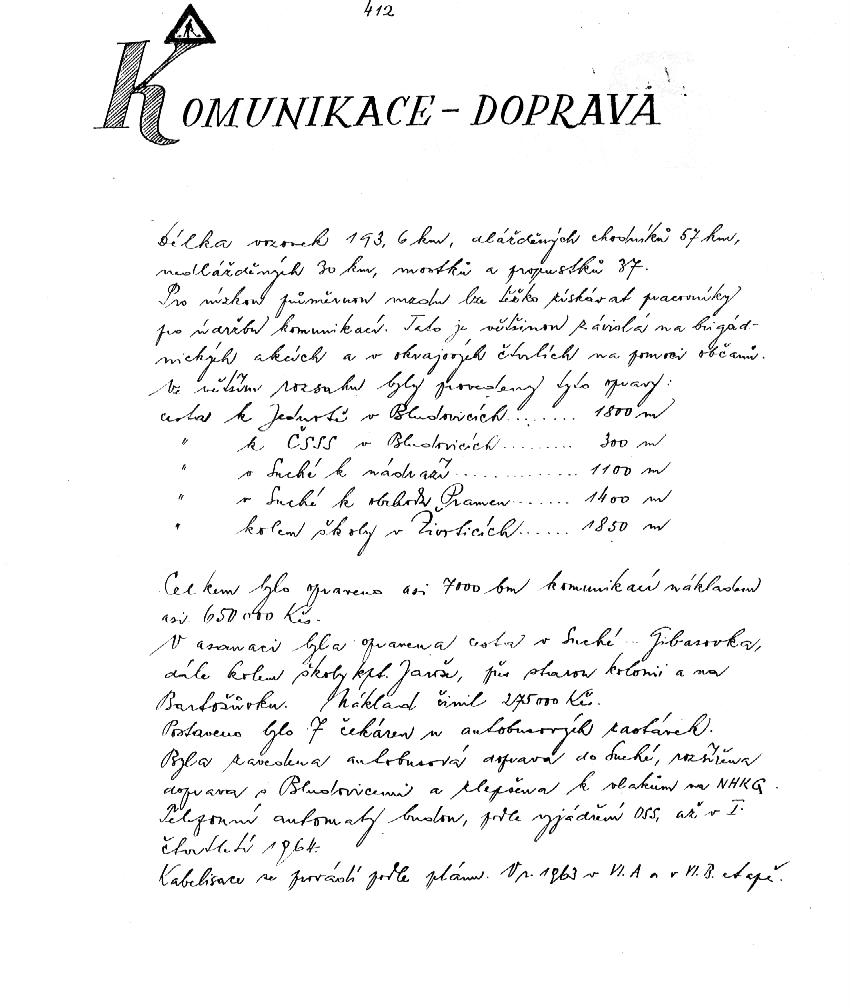 412
KOMUNIKACE - DOPRAVA
Délka vozovek 193,6 km, dlážděných chodníků 57 km,
nedlážděných 30 km, mostků a propustků 37.
Pro nízkou průměrnou mzdu lze těžko získávat pracovníky
pro údržbu komunikací. Tato je většinou závislá na brigád-
nických akcích a v okrajových čtvrtích na pomoci občanů.
Ve větším rozsahu byly provedeny tyto opravy:
cesta k Jednotě v Bludovicích....... 1800 m
" k ČSSS v Bludovicích......... 300 m
" v Suché k nádraží.............. 1100 m
" v Suché k obchodu Pramen....... 1400 m
" kolem školy v Životicích...... 1850 m
Celkem bylo opraveno asi 7000 bm komunikací nákladem
asi 650000 Kčs.
V asanaci byla opravena cesta v Suché - Gibasovka,
dále kolem školy kpt. Jaroše, přes starou kolonii a na
Bartošůvku. Náklad činil 275000 Kčs.
Postaveno bylo 7 čekáren u autobusových zastávek.
Byla zavedena autobusová doprava do Suché, rozšířena
doprava s Bludovicemi a zlepšena k vlakům na NHKG.
Telefonní automaty budou, podle vyjádření OSS, až v I.
čtvrtletí 1964.
Kabelisace se provádí podle plánu. V r. 1963 v VI.A a v VI.B. etapě.